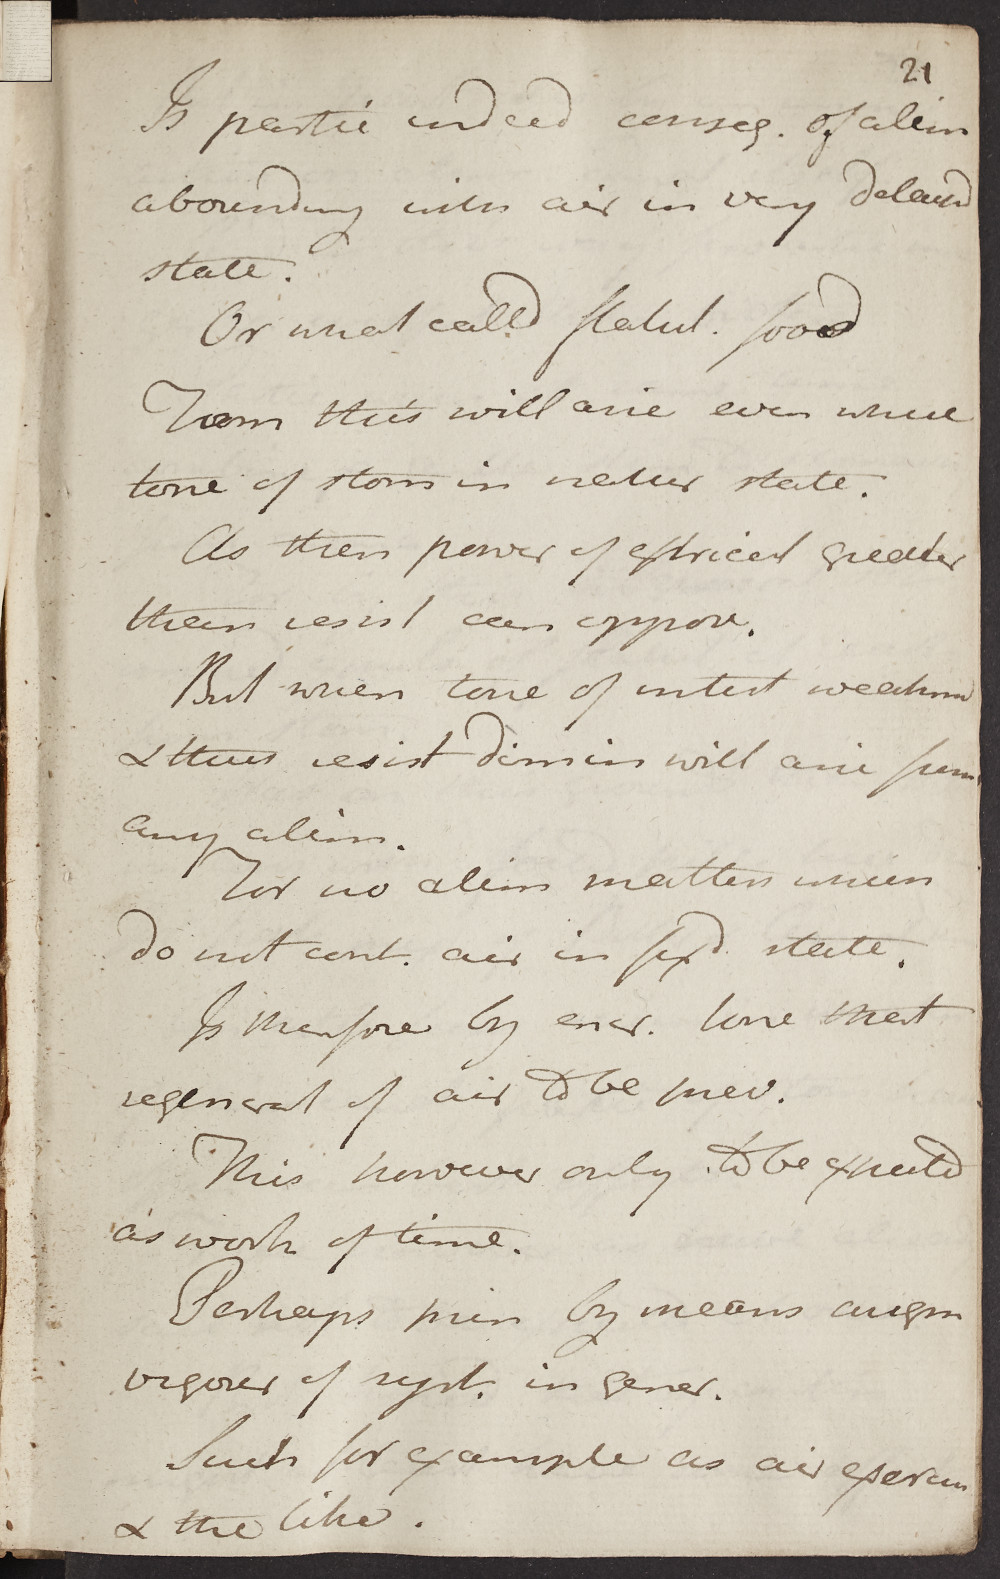 21
Is partic indeed conseq. of alim
abounding with air in very delacd
state.
Or what calld flatul. food
From this will arie even where
tone of stom in natur state.
As then power of extricat greater
than resist can oppose.
But when tone of intest weaknd
& thus resist dimin will arie from
any alim.
For no alim matters which
do not cont. air in fixd state.
Is therefore by encr. tone that
regenerat of air to be prev.
This however only to be expectd
as work of time.
Perhaps prin by means augm
vigour of syst. in gener.
Such for example as air exerc
& the like.